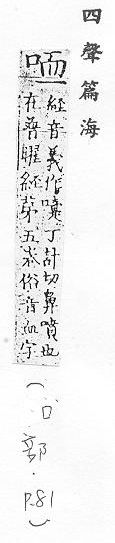 四聲篇海
經音義作嚏丁計切鼻噴也
在普曜經第五卷俗音而字
(口部.P.81)